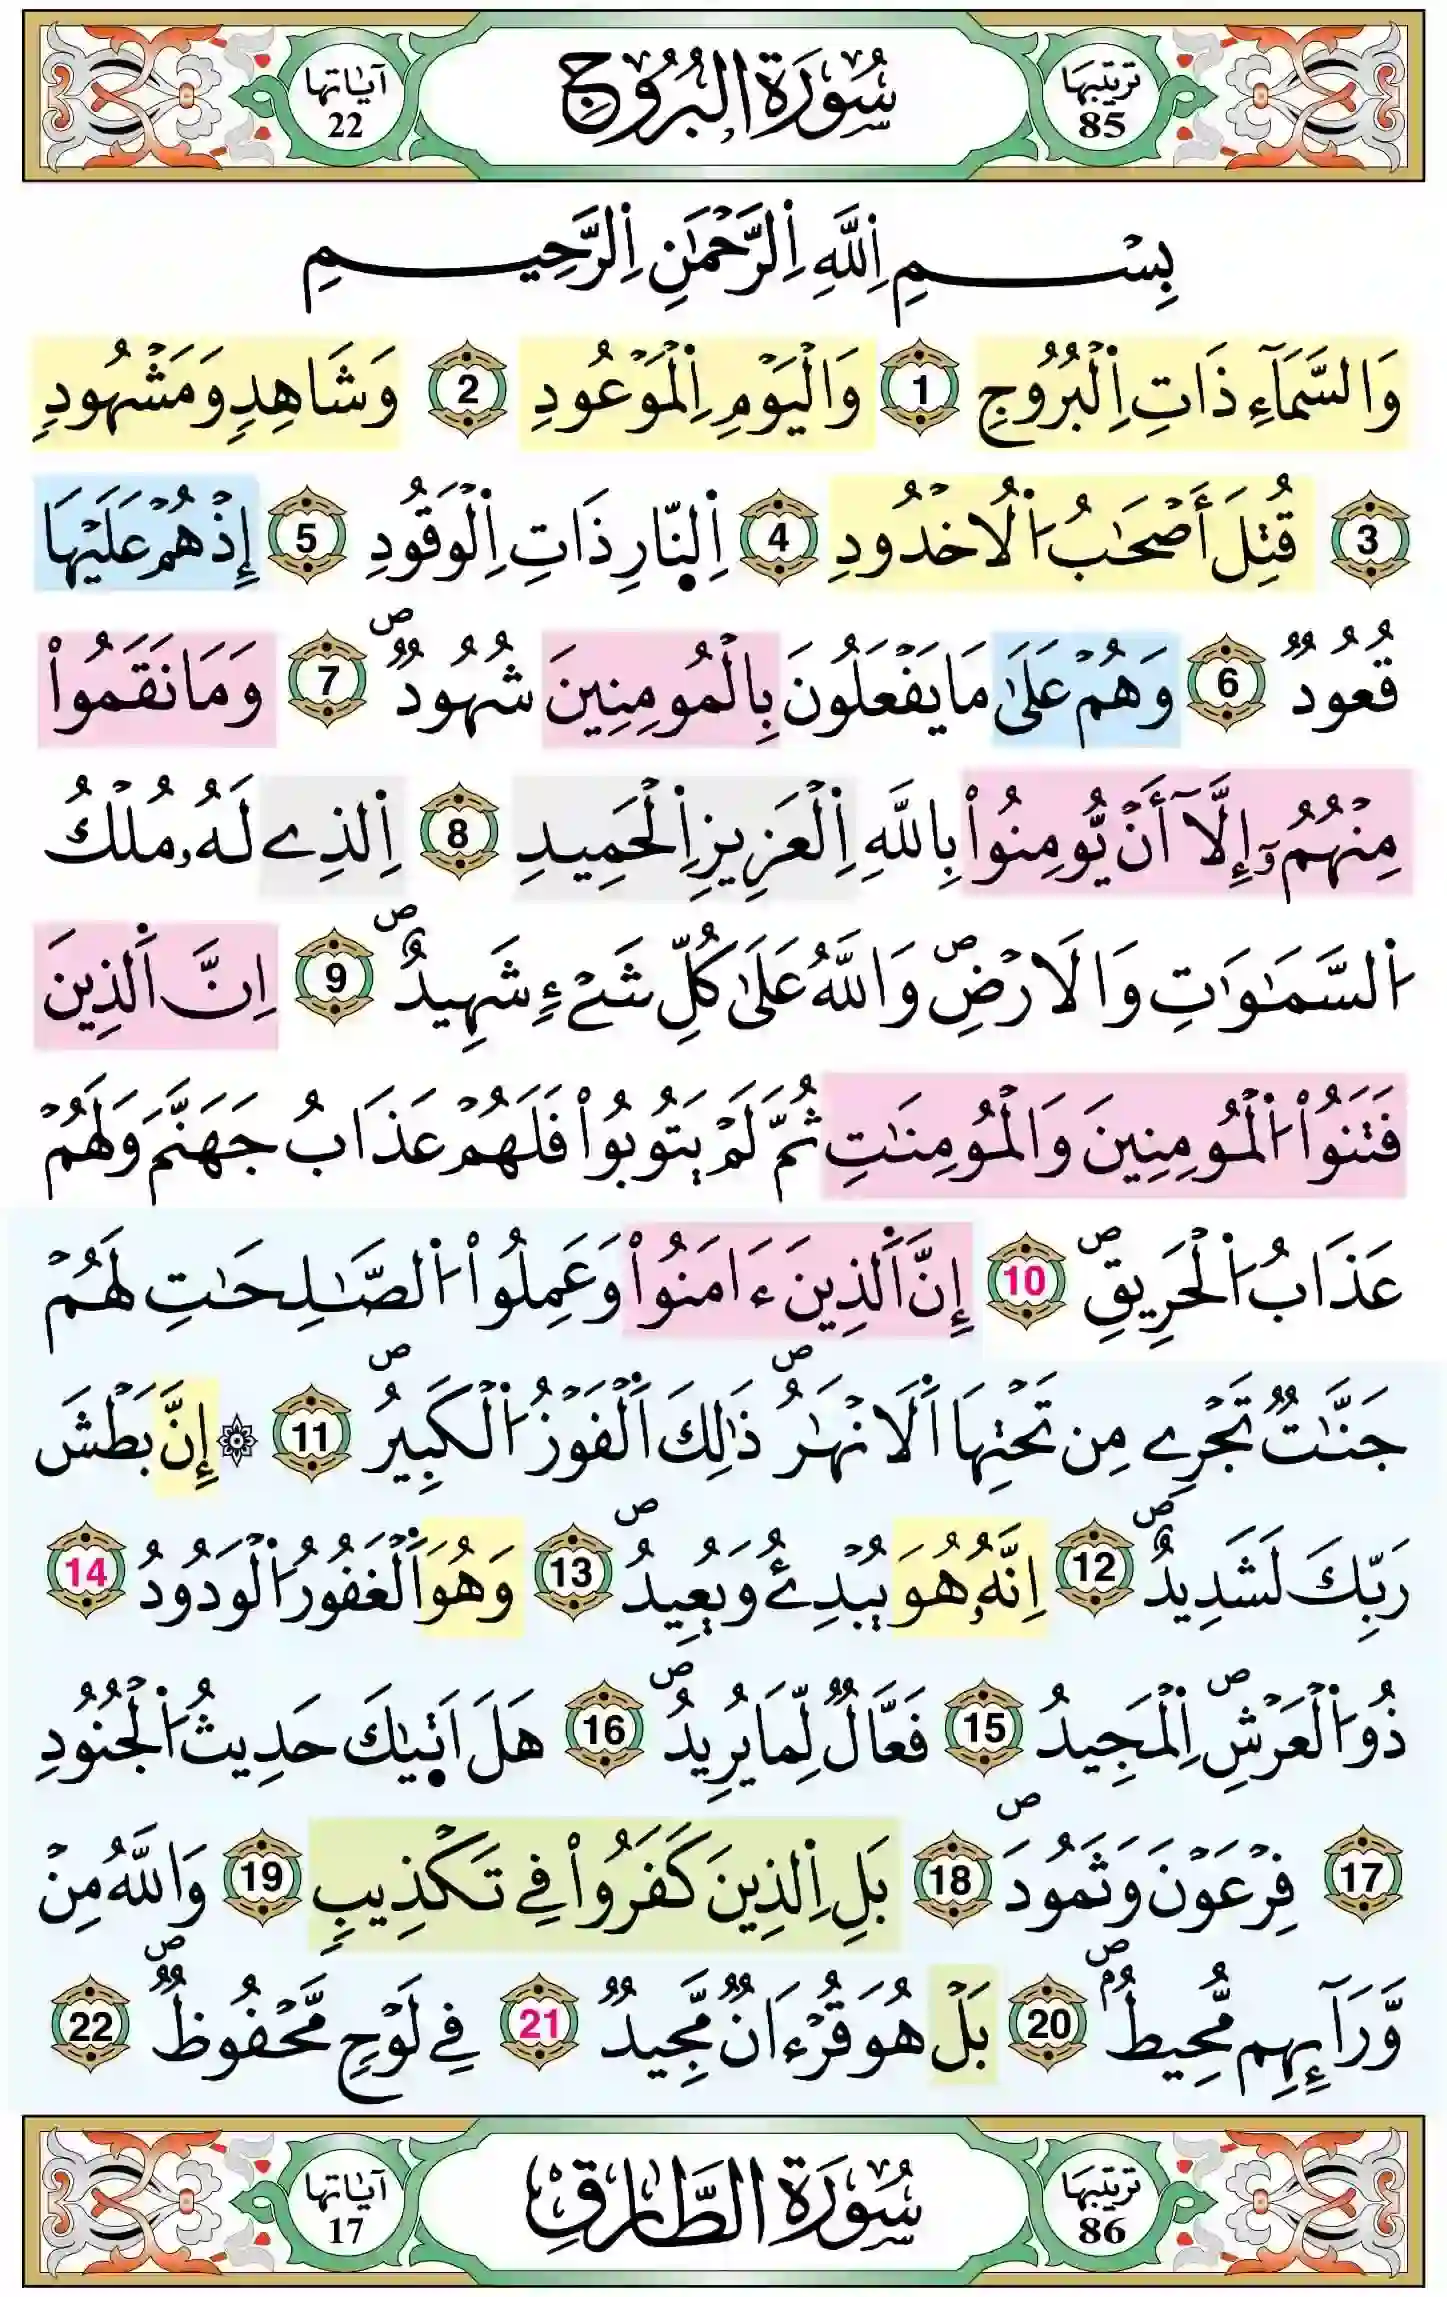 ترتيبها 85 سُورَةُ البُرُوجِ آياتها 22
بِسْمِ اِ۬للَّهِ اِ۬لرَّحْمَٰنِ اِ۬لرَّحِيمِ
وَالسَّمَآءِ ذَاتِ اِ۬لْبُرُوجِ 1 وَالْيَوْمِ اِ۬لْمَوْعُودِ 2 وَشَاهِدٖ وَمَشْهُودٖ
3 قُتِلَ أَصْحَٰبُ اُ۬لُاخْدُودِ 4 اِ۬لنّ۪ارِ ذَاتِ اِ۬لْوَقُودِ 5 إِذْ هُمْ عَلَيْهَا
قُعُودٞ 6 وَهُمْ عَلَىٰ مَا يَفْعَلُونَ بِالْمُومِنِينَ شُهُودٞۖ 7 وَمَا نَقَمُواْ
مِنْهُمُۥٓ إِلَّآ أَنْ يُّومِنُواْ بِاللَّهِ اِ۬لْعَزِيزِ اِ۬لْحَمِيدِ 8 اِ۬لذِے لَهُۥ مُلْكُ
اُ۬لسَّمَٰوَٰتِ وَالَارْضِۖ وَاللَّهُ عَلَىٰ كُلِّ شَےْءٖ شَهِيدٌۖ 9 اِنَّ اَ۬لذِينَ
فَتَنُواْ اُ۬لْمُومِنِينَ وَالْمُومِنَٰتِ ثُمَّ لَمْ يَتُوبُواْ فَلَهُمْ عَذَابُ جَهَنَّمَ وَلَهُمْ
عَذَابُ اُ۬لْحَرِيقِۖ 10 إِنَّ اَ۬لذِينَ ءَامَنُواْ وَعَمِلُواْ اُ۬لصَّٰلِحَٰتِ لَهُمْ
جَنَّٰتٞ تَجْرِے مِن تَحْتِهَا اَ۬لَانْهَٰرُۖ ذَٰلِكَ اَ۬لْفَوْزُ اُ۬لْكَبِيرُۖ 11 ۞ إِنَّ بَطْشَ
رَبِّكَ لَشَدِيدٌۖ 12 اِنَّهُۥ هُوَ يُبْدِئُ وَيُعِيدُۖ 13 وَهُوَ اَ۬لْغَفُورُ اُ۬لْوَدُودُ 14
ذُو اُ۬لْعَرْشِۖ اِ۬لْمَجِيدُ 15 فَعَّالٞ لِّمَا يُرِيدُۖ 16 هَلَ اَت۪يٰكَ حَدِيثُ اُ۬لْجُنُودِ
17 فِرْعَوْنَ وَثَمُودَۖ 18 بَلِ اِ۬لذِينَ كَفَرُواْ فِے تَكْذِيبٖ 19 وَاللَّهُ مِنْ
وَّرَآئِهِم مُّحِيطُۢۖ 20 بَلْ هُوَ قُرْءَانٞ مَّجِيدٞ 21 فِے لَوْحٖ مَّحْفُوظٞۖ 22
ترتيبها 86 سُورَةُ الطَّارِقِ آياتها 17